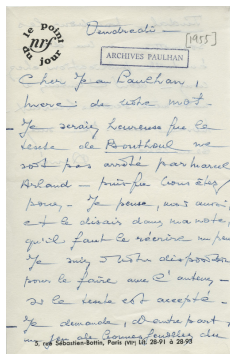 le point
nrf
du jour
Vendredi —
[1955]
ARCHIVES PAULHAN
Cher Jean Paulhan,
merci de votre mot.
Je serais heureuse que le
texte de Bouthoul ne
soit pas arrêté par Marcel
Arland — puisque vous êtes
pour — Je pense, moi aussi,
et le disais dans ma note,
qu'il faut le récrire un peu
Je suis à votre disposition
pour le faire avec l'auteur —
si le texte est accepté —
Je demande, d'autre part,
un jeu de bonnes feuilles du
5, rue Sébastien-Bottin, Paris (VIIe) Lit. 28-91 à 28-93